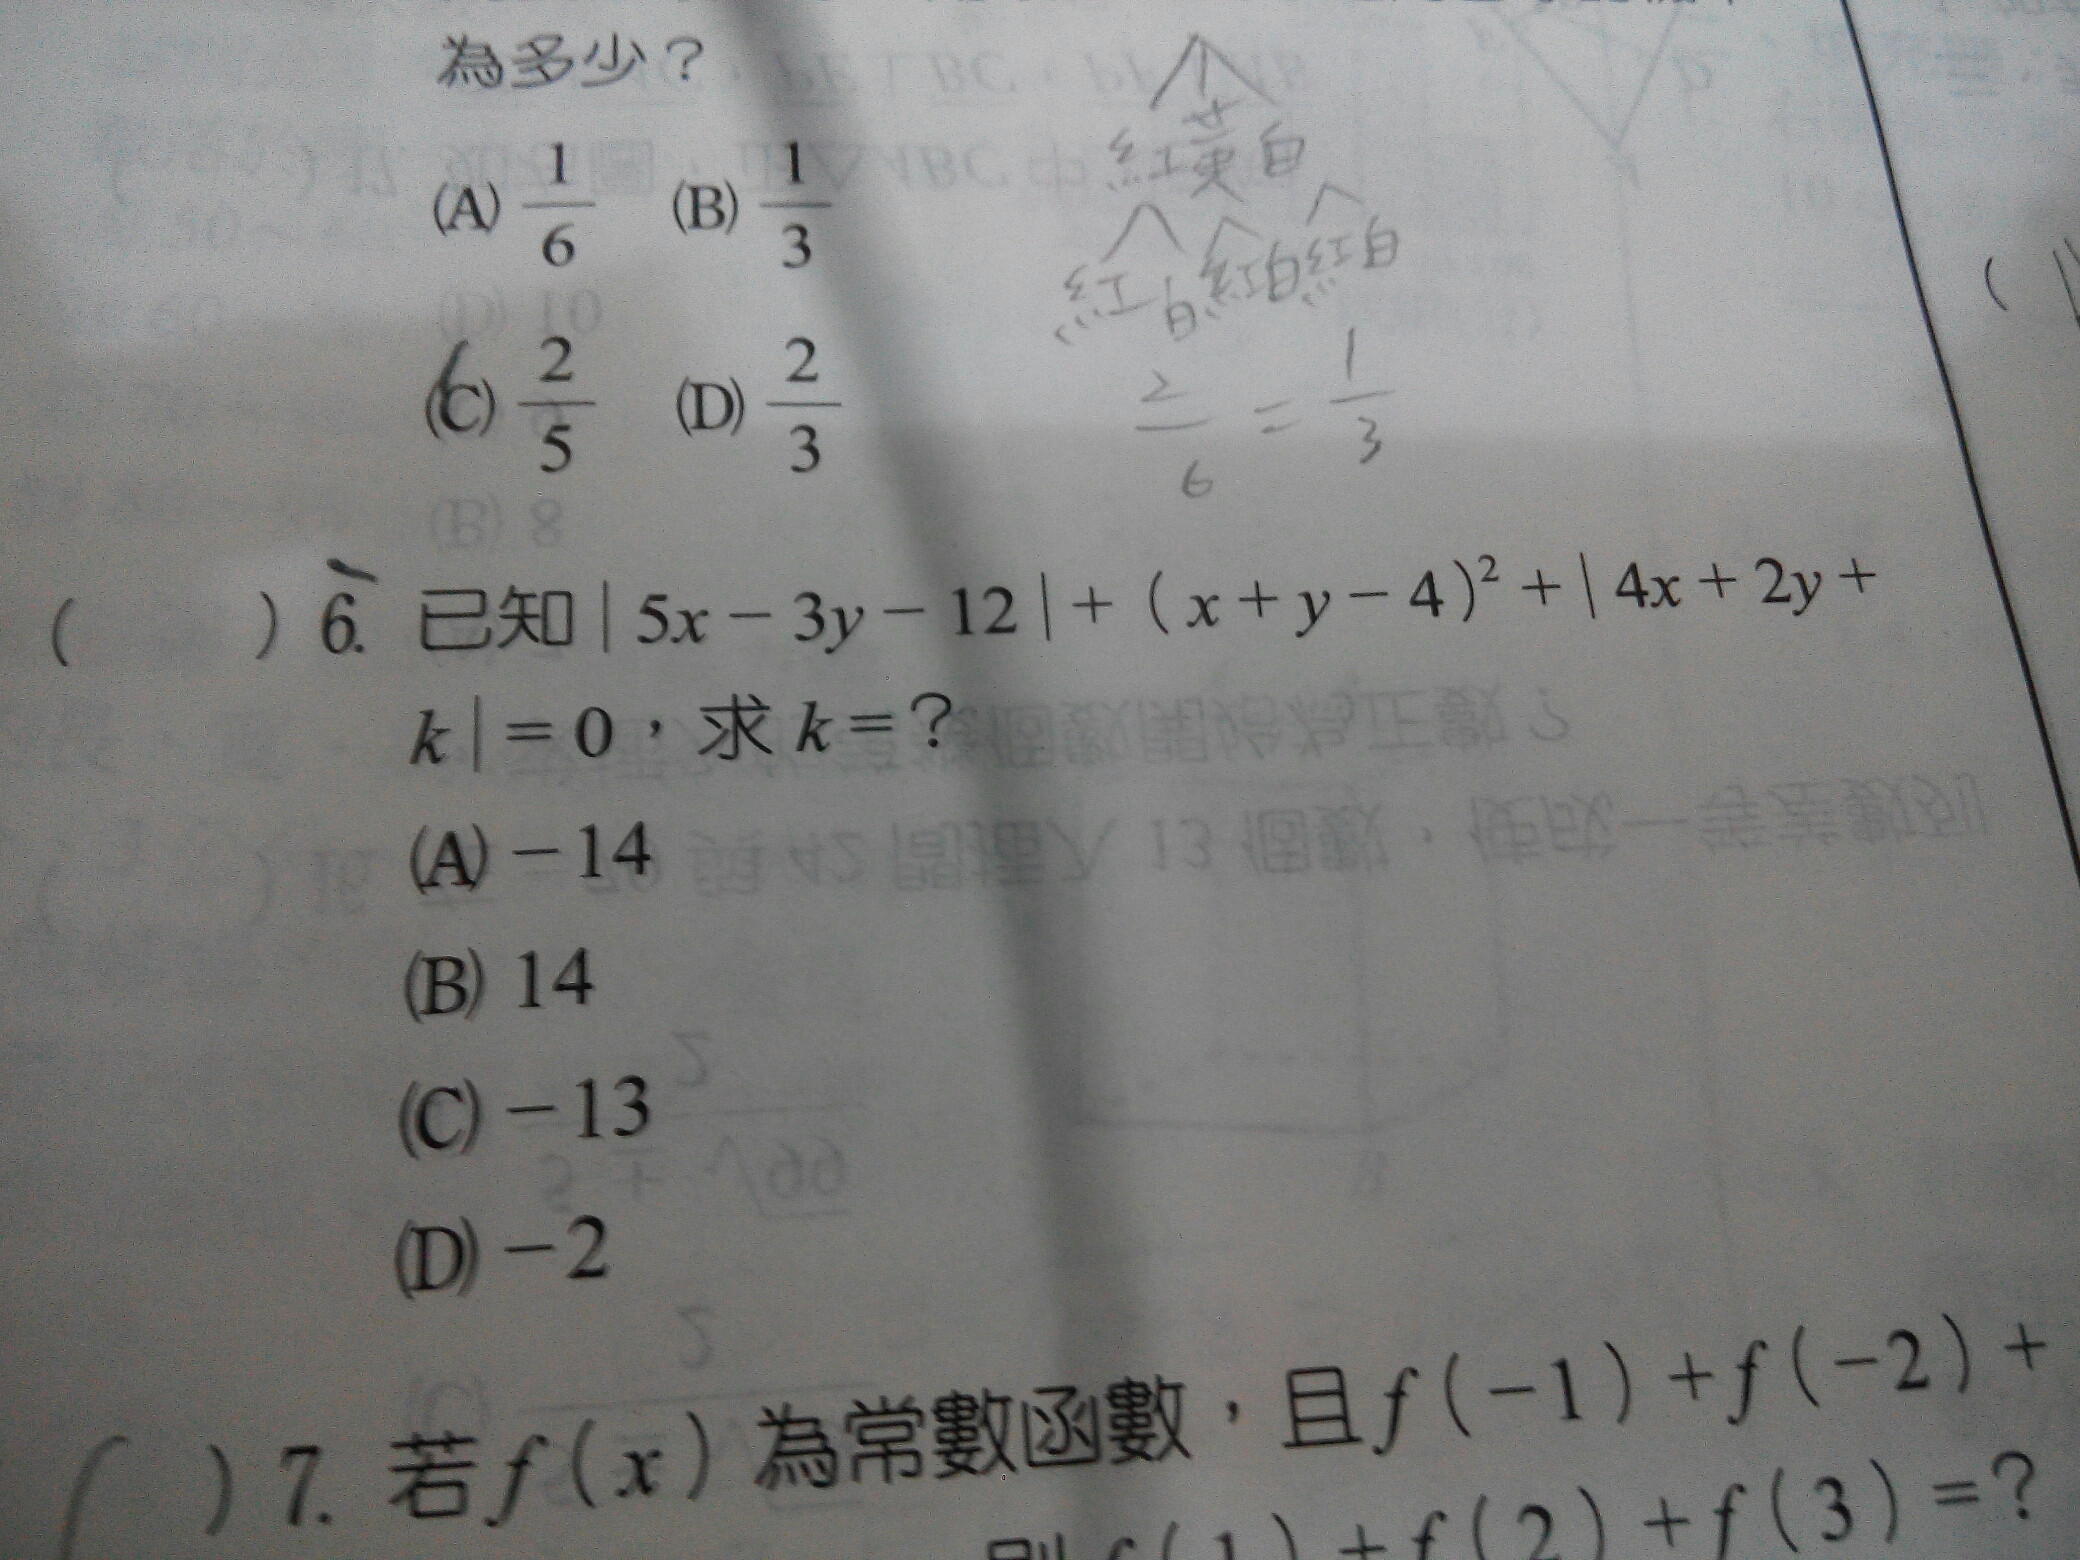 為多少?
(A) 1/6 (B) 1/3
(C) 2/5 (D) 2/3
紅黃白
紅白紅白紅白
2/6 = 1/3
( ) 6. 已知 | 5x − 3y − 12 | + ( x + y − 4 )² + | 4x + 2y +
k | = 0，求 k = ?
(A) −14
(B) 14
(C) −13
(D) −2
( ) 7. 若 f ( x ) 為常數函數，且 f ( −1 ) + f ( −2 ) +
則 f ( 1 ) + f ( 2 ) + f ( 3 ) = ?